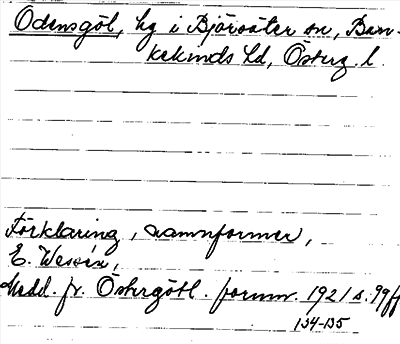 Odensgöl, hg i Björsäter sn, Ban-
kekinds hd, Österg. l.
Förklaring, namnformer,
E. Wessén,
Medd. fr. Östergötl. fornm. 1921 s. 99ff
134-135